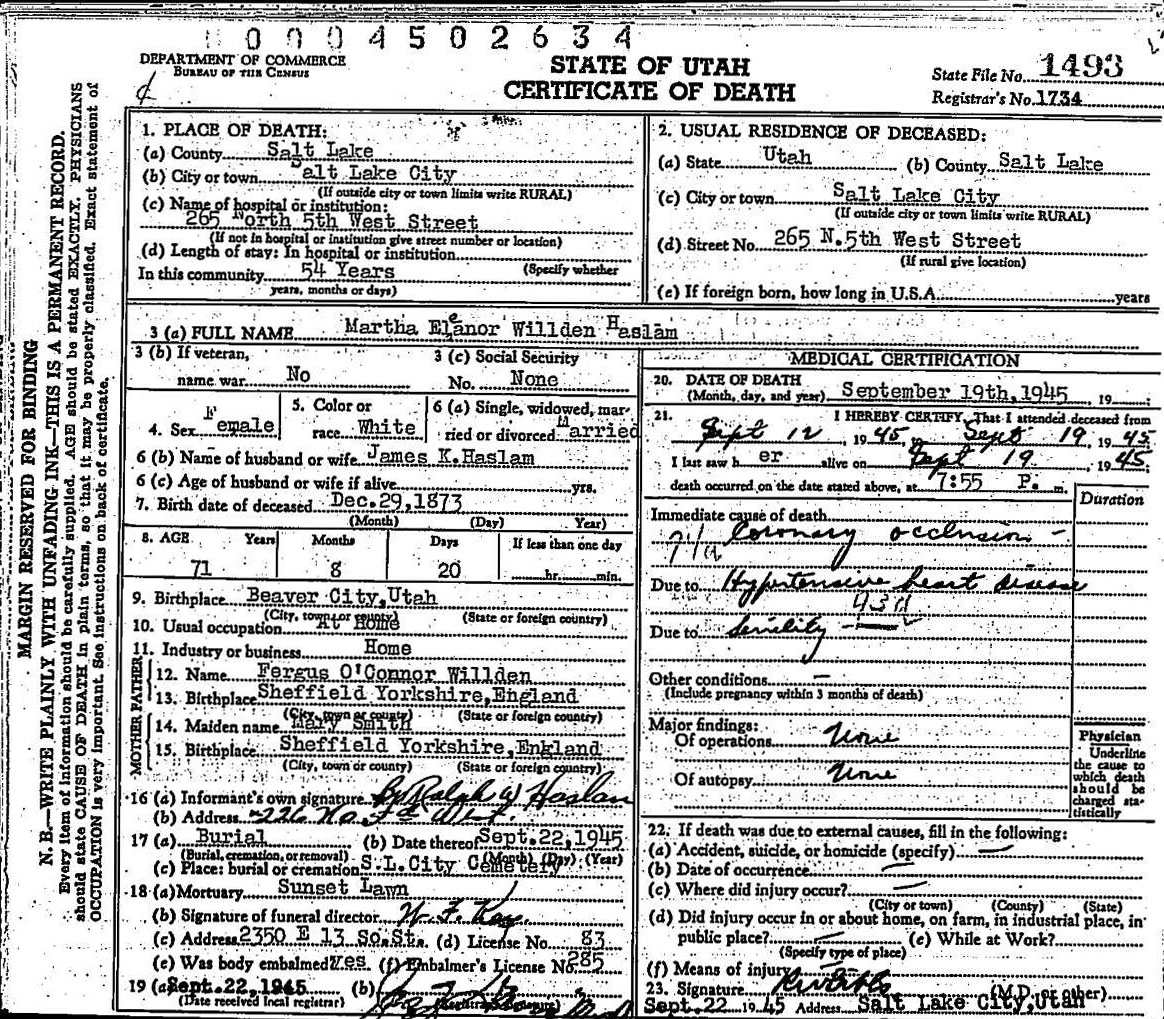 0 0 0 4 5 0 2 6 3 4
DEPARTMENT OF COMMERCE
BUREAU OF THE CENSUS
STATE OF UTAH
CERTIFICATE OF DEATH
State File No. 1493
Registrar's No. 1734
MARGIN RESERVED FOR BINDING
N. B.—WRITE PLAINLY WITH UNFADING INK—THIS IS A PERMANENT RECORD.
Every item of information should be carefully supplied. AGE should be stated EXACTLY. PHYSICIANS
should state CAUSE OF DEATH in plain terms, so that it may be properly classified. Exact statement of
OCCUPATION is very important. See instructions on back of certificate.
1. PLACE OF DEATH:
(a) County Salt Lake
(b) City or town Salt Lake City
(If outside city or town limits write RURAL)
(c) Name of hospital or institution:
265 North 5th West Street
(If not in hospital or institution give street number or location)
(d) Length of stay: In hospital or institution
In this community 54 Years (Specify whether
years, months or days)
2. USUAL RESIDENCE OF DECEASED:
(a) State Utah (b) County Salt Lake
(c) City or town Salt Lake City
(If outside city or town limits write RURAL)
(d) Street No. 265 N. 5th West Street
(If rural give location)
(e) If foreign born, how long in U.S.A. years
3 (a) FULL NAME Martha Eleanor Willden Haslam
3 (b) If veteran, 3 (c) Social Security
name war No No. None
4. Sex Female 5. Color or race White 6 (a) Single, widowed, married or divorced Married
6 (b) Name of husband or wife James K. Haslam
6 (c) Age of husband or wife if alive yrs.
7. Birth date of deceased Dec. 29, 1873
(Month) (Day) Year)
8. AGE Years Months Days If less than one day
71 8 20 hr. min.
9. Birthplace Beaver City, Utah
(City, town or county) (State or foreign country)
10. Usual occupation At Home
11. Industry or business Home
FATHER
12. Name Fergus O'Connor Willden
13. Birthplace Sheffield Yorkshire, England
(City, town or county) (State or foreign country)
MOTHER
14. Maiden name Mary Smith
15. Birthplace Sheffield Yorkshire, England
(City, town or county) (State or foreign country)
16 (a) Informant's own signature By Ralph W Haslam
(b) Address 226 No. West
17 (a) Burial (b) Date thereof Sept. 22, 1945
(Burial, cremation, or removal) (Month) (Day) (Year)
(c) Place: burial or cremation S.L. City Cemetery
18 (a) Mortuary Sunset Lawn
(b) Signature of funeral director W. F. Kay
(c) Address 2350 E 13 So. St. (d) License No. 83
(e) Was body embalmed Yes (f) Embalmer's License No. 285
19 (a) Sept. 22, 1945 (b)
(Date received local registrar) (Registrar's signature)
MEDICAL CERTIFICATION
20. DATE OF DEATH
(Month, day, and year) September 19th, 1945 19
21. I HEREBY CERTIFY, That I attended deceased from
Sept 12, 1945, to Sept 19, 1945
I last saw her alive on Sept 19, 1945,
death occurred on the date stated above, at 7:55 P. m.
Duration
Immediate cause of death
Coronary occlusion
Due to Hypertensive heart disease
Due to Senility
Other conditions
(Include pregnancy within 3 months of death)
Major findings:
Of operations None
Of autopsy None
Physician
Underline
the cause to
which death
should be
charged sta-
tistically
22. If death was due to external causes, fill in the following:
(a) Accident, suicide, or homicide (specify)
(b) Date of occurrence
(c) Where did injury occur?
(City or town) (County) (State)
(d) Did injury occur in or about home, on farm, in industrial place, in
public place? (e) While at Work?
(Specify type of place)
(f) Means of injury
23. Signature (M.D. or other)
Sept. 22 1945 Address Salt Lake City, Utah